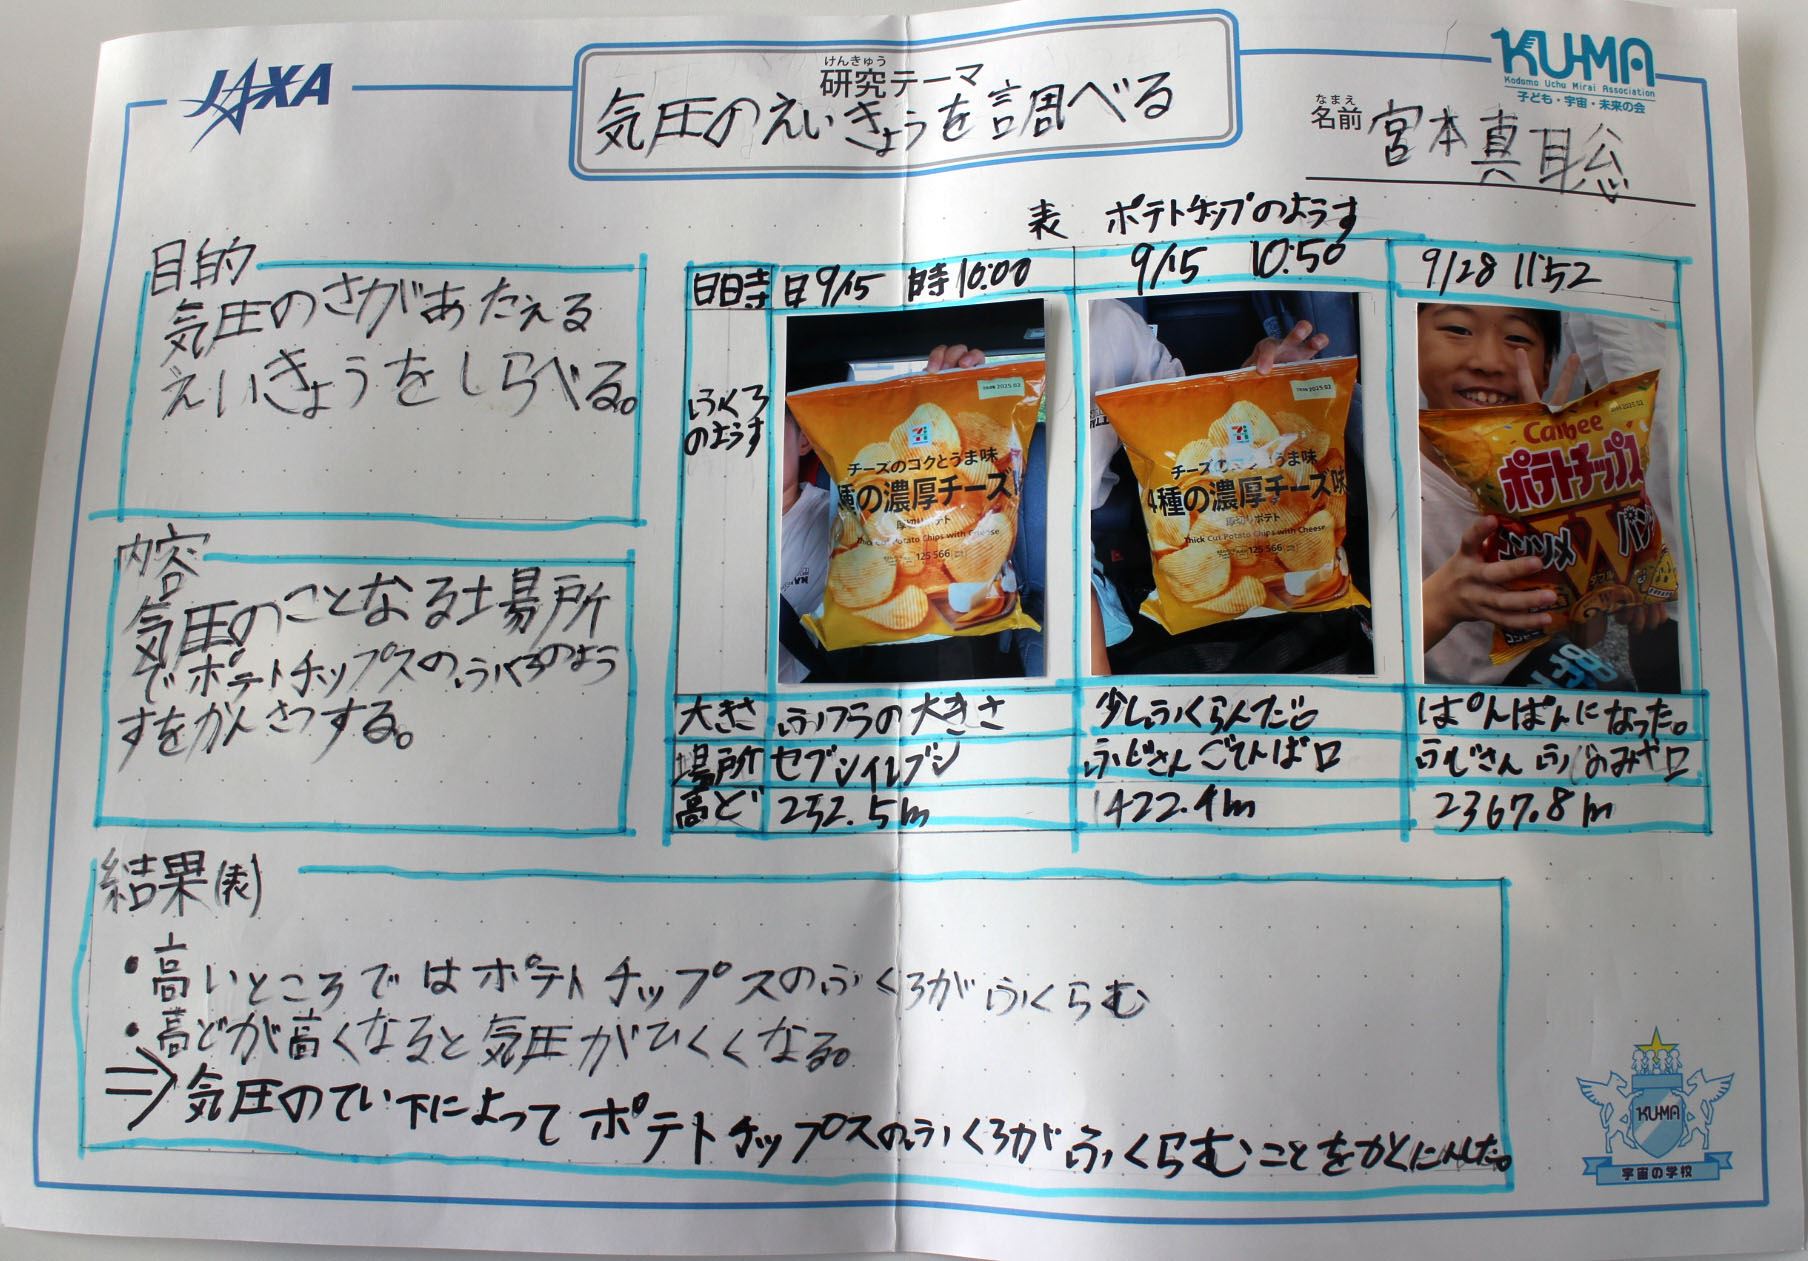 JAXA
けんきゅう
研究テーマ
気圧のえいきょうを調べる
KU-MA
Kodomo Uchu Mirai Association
子ども・宇宙・未来の会
なまえ
名前 宮本真聡
目的
気圧のさがあたえる
えいきょうをしらべる。
内容
気圧のことなる場所
でポテトチップスのふくろのよう
すをかんさつする。
表 ポテトチップのようす
日時 日9/15 時10:00 9/15 10:50 9/28 11:52
ふくろ
のようす
チーズのコクとうま味
種の濃厚チーズ
厚切りポテト
Thick Cut Potato Chips with Cheese
125 566
2025.02
チーズのコクとうま味
4種の濃厚チーズ味
厚切りポテト
Thick Cut Potato Chips with Cheese
125 566
2025.02
Calbee
ポテトチップス
コンソメ
W
パンチ
大きさ ふつうの大きさ 少しふくらんだ。 ぱんぱんになった。
場所 セブンイレブン ふじさんごてんば口 ふじさんふじのみや口
高ど 252.5m 1422.4m 2367.8m
結果(表)
・高いところではポテトチップスのふくろがふくらむ
・高どが高くなると気圧がひくくなる。
⇒気圧のてい下によってポテトチップスのふくろがふくらむことをかくにんした。
KU-MA
宇宙の学校